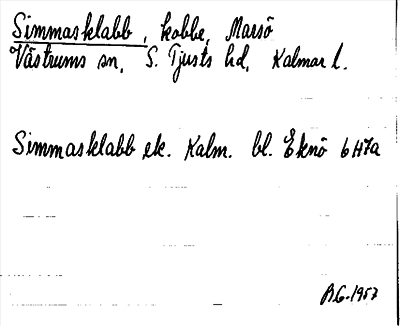 Simmasklabb, kobbe, Marsö
Västrums sn, S. Tjusts hd, Kalmar l.
Simmasklabb ek. Kalm. bl. Eknö 6H7a
B.G. 1957